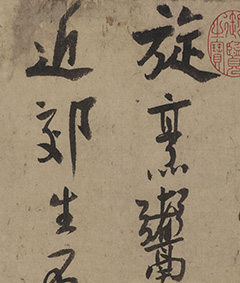 旋烹鬻
近郊生